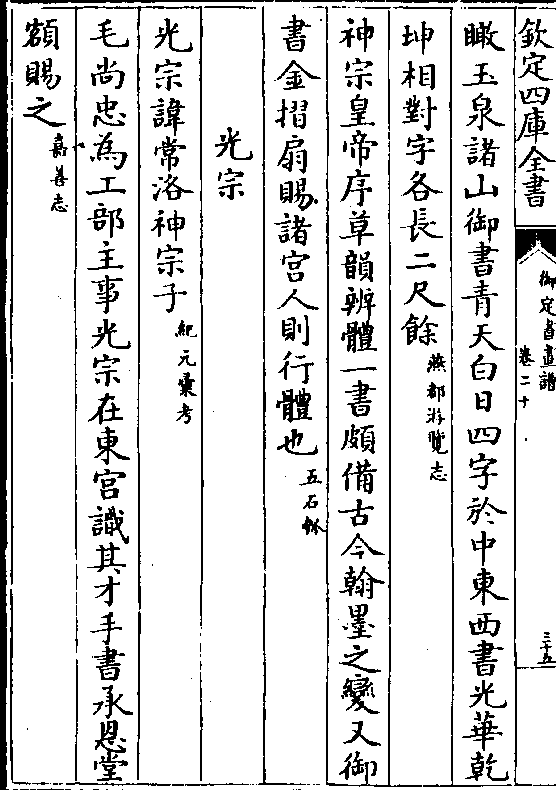 欽定四庫全書
御定書畫譜
卷二十
三十九
瞰玉泉諸山御書青天白日四字於中東西書光華乾
坤相對字各長二尺餘燕都游覽志
神宗皇帝序草韻辨體一書頗備古今翰墨之變又御
書金摺扇賜諸宫人則行體也五石瓠
光宗
光宗諱常洛神宗子紀元彙考
毛尚忠為工部主事光宗在東宫識其才手書承恩堂
額賜之嘉善志